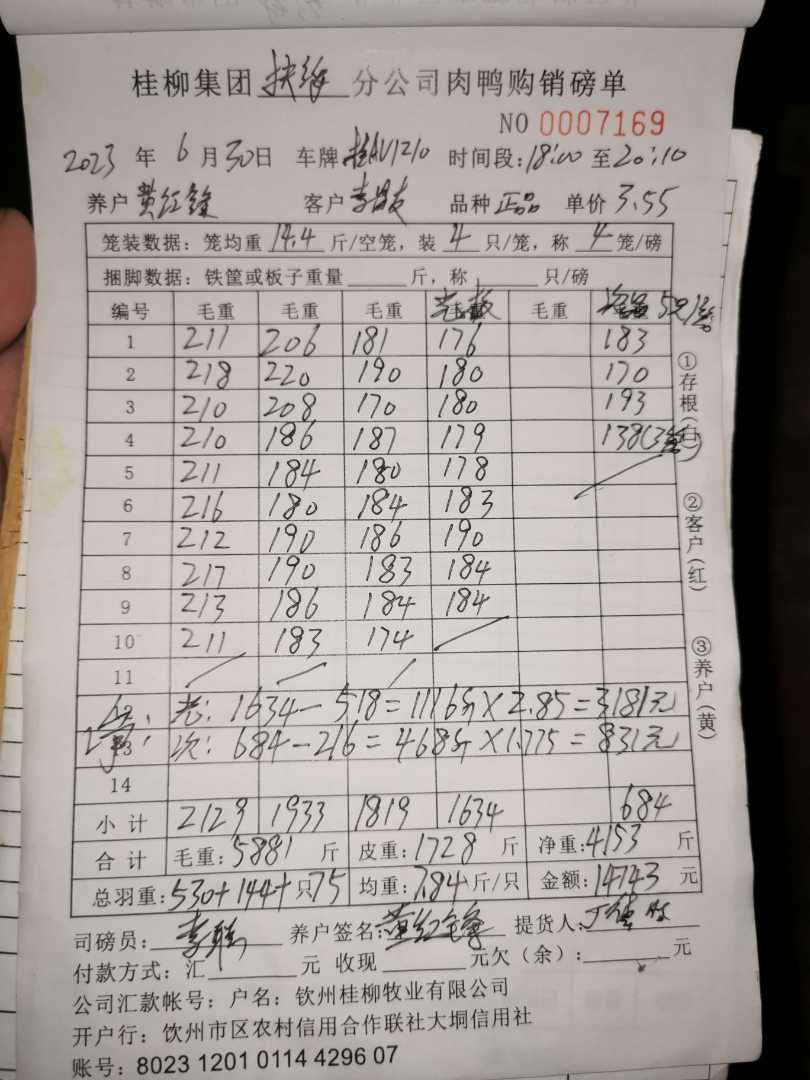 桂柳集团 扶绥 分公司肉鸭购销磅单
NO 0007169
2023 年 6 月 30 日 车牌 桂AV1210 时间段: 18:00 至 20:10
养户 黄红锋 客户 品种 正品 单价 3.55
笼装数据: 笼均重 14.4 斤/空笼, 装 4 只/笼, 称 4 笼/磅
捆脚数据: 铁筐或板子重量 斤, 称 只/磅
编号 毛重 毛重 毛重 毛重 5只/笼
1 211 206 181 176 183
2 218 220 190 180 170
3 210 208 170 180 193
4 210 186 187 179 138(3笼)
5 211 184 180 178
6 216 180 184 183
7 212 190 186 190
8 217 190 183 184
9 213 186 184 184
10 211 183 174
11
老: 1634-518=1116斤×2.85=3181元
13 次: 684-216=468斤×1.775=831元
14
小计 2129 1933 1819 1634 684
合计 毛重: 5881 斤 皮重: 1728 斤 净重: 4153 斤
总羽重: 530+144+ 只 75 均重: 7.84 斤/只 金额: 14743 元
司磅员: 养户签名: 黄红锋 提货人:
付款方式: 汇 元 收现 元欠(余): 元
公司汇款帐号: 户名: 钦州桂柳牧业有限公司
开户行: 饮州市区农村信用合作联社大垌信用社
账号: 8023 1201 0114 4296 07
①存根(白)
②客户(红)
③养户(黄)